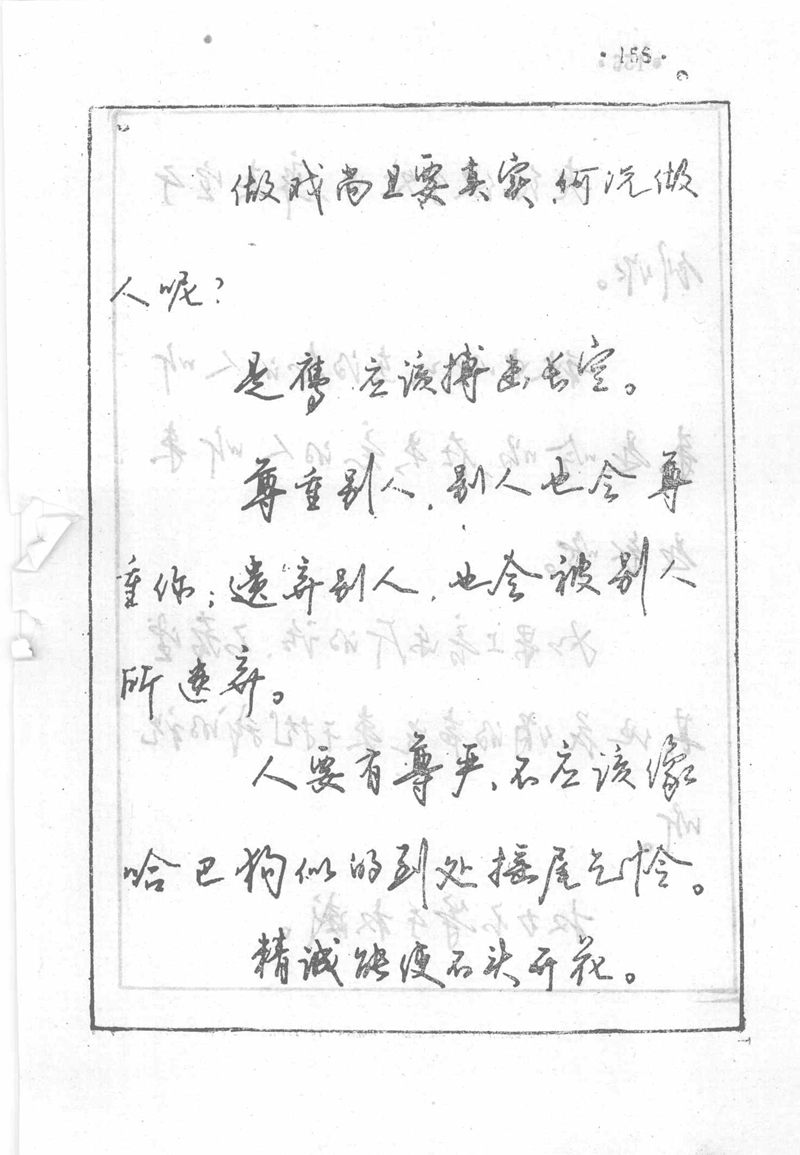 ·155·
做戏尚且要真实，何况做
人呢？
是鹰应该搏击长空。
尊重别人，别人也会尊
重你；遗弃别人，也会被别人
所遗弃。
人要有尊严，不应该像
哈巴狗似的到处摇尾乞怜。
精诚能使石头开花。